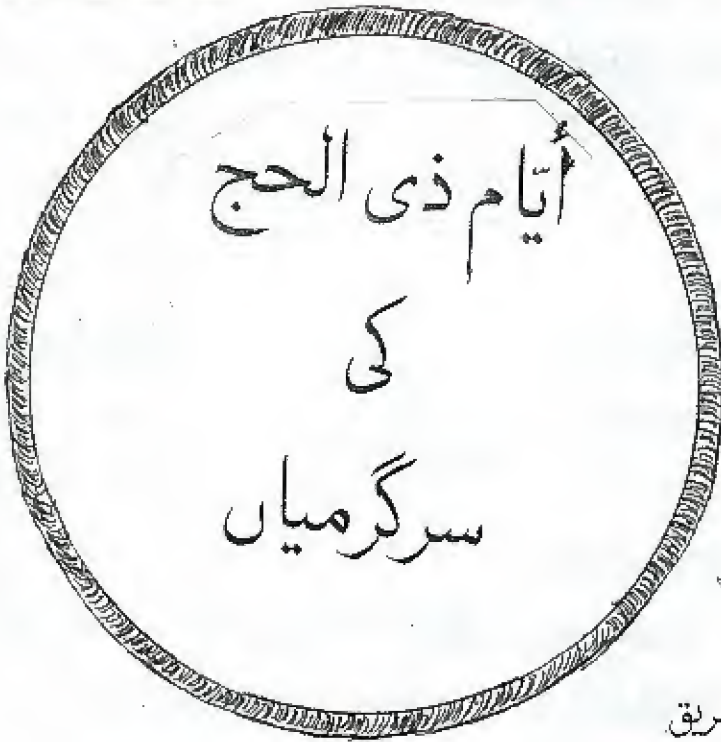 أیّام ذی الحج
کی
سرگرمیاں